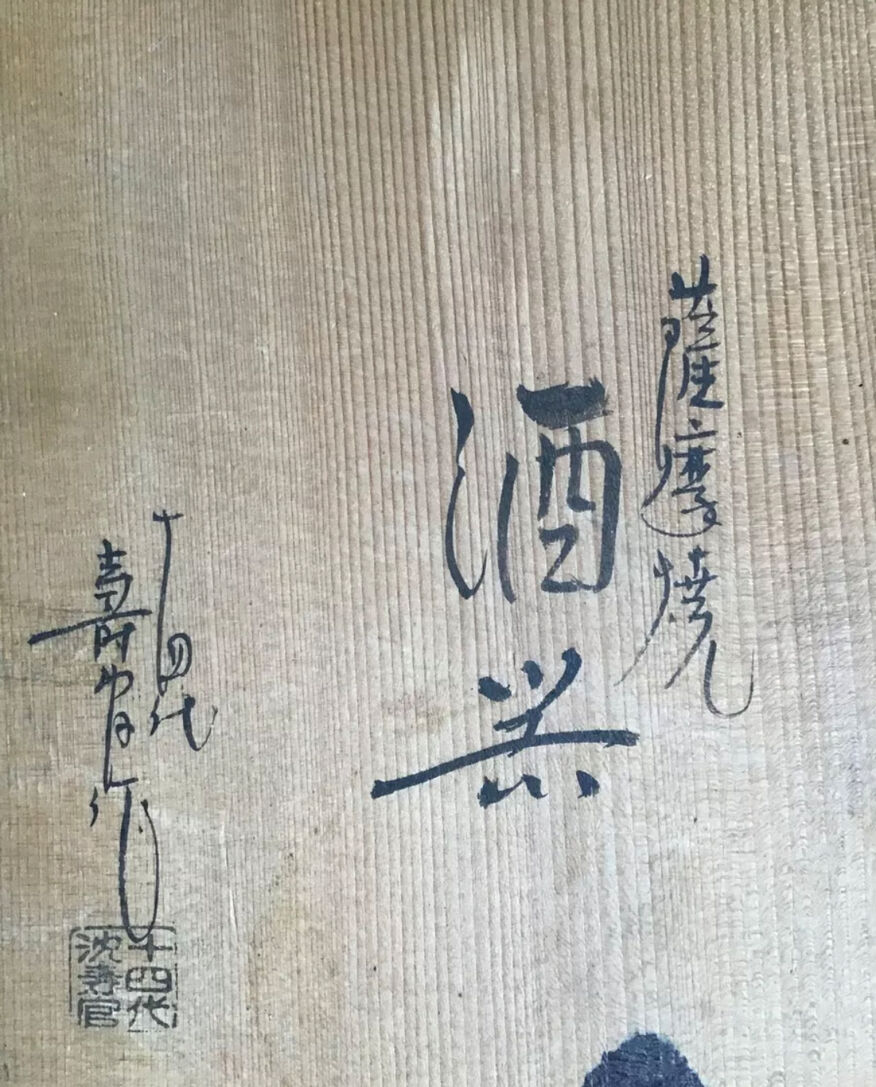 薩摩焼
酒器
十四代
壽官作
十四代
沈寿官